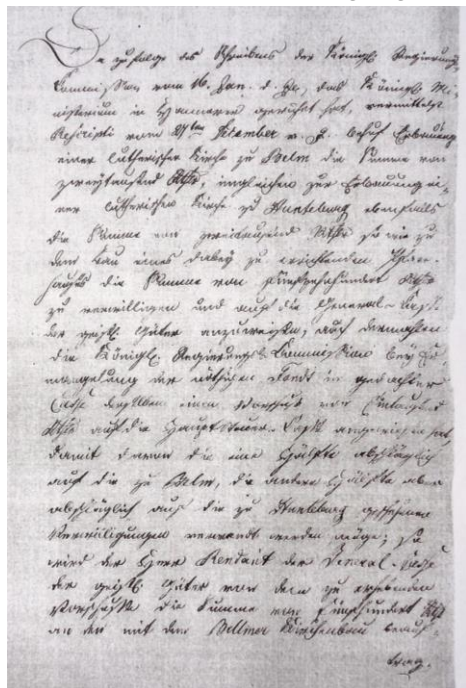 Da zufolge des Schreibens der Königl. Regierungs
Commission vom 16. Jan. d. J., das Königl. Mi-
nisterium in Hannover geruhet hat, vermittelst
Rescripti vom 27ten December v. J. behuf Erbauung
einer lutherischen Kirche zu Belm die Summe von
zweytausend Rthlr, imgleichen zur Erbauung ei-
ner lutherischen Kirche zu Hunteburg ebenfalls
die Summe von zweitausend Rthlr so wie zu
dem Bau eines dabey zu errichtenden Pfarr-
hauses die Summe von Rthlr
zu verwilligen und auf die General-Casse
der geistl. Güter anzuweisen, auch dermahlen
die Königl. Regierungs Commission bey Er-
mangelung der nöthigen Fonds in gedachter
Casse derselben einen Vorschuß von Eintausend
Rthlr auf die Hauptsteuer-Casse angewiesen hat,
damit davon die eine Hälfte abschläglich
auf die zu Belm, die andere Hälfte aber
abschläglich auf die zu Hunteburg geschehenen
Verwilligungen verwandt werden möge; so
wird der Herr Rendant der General-Casse
der geistl. Güter von dem zu erhebenden
Vorschuße die Summe von Fünfhundert Rthlr
an den mit dem Belmer Kirchenbau beauf-
trag-